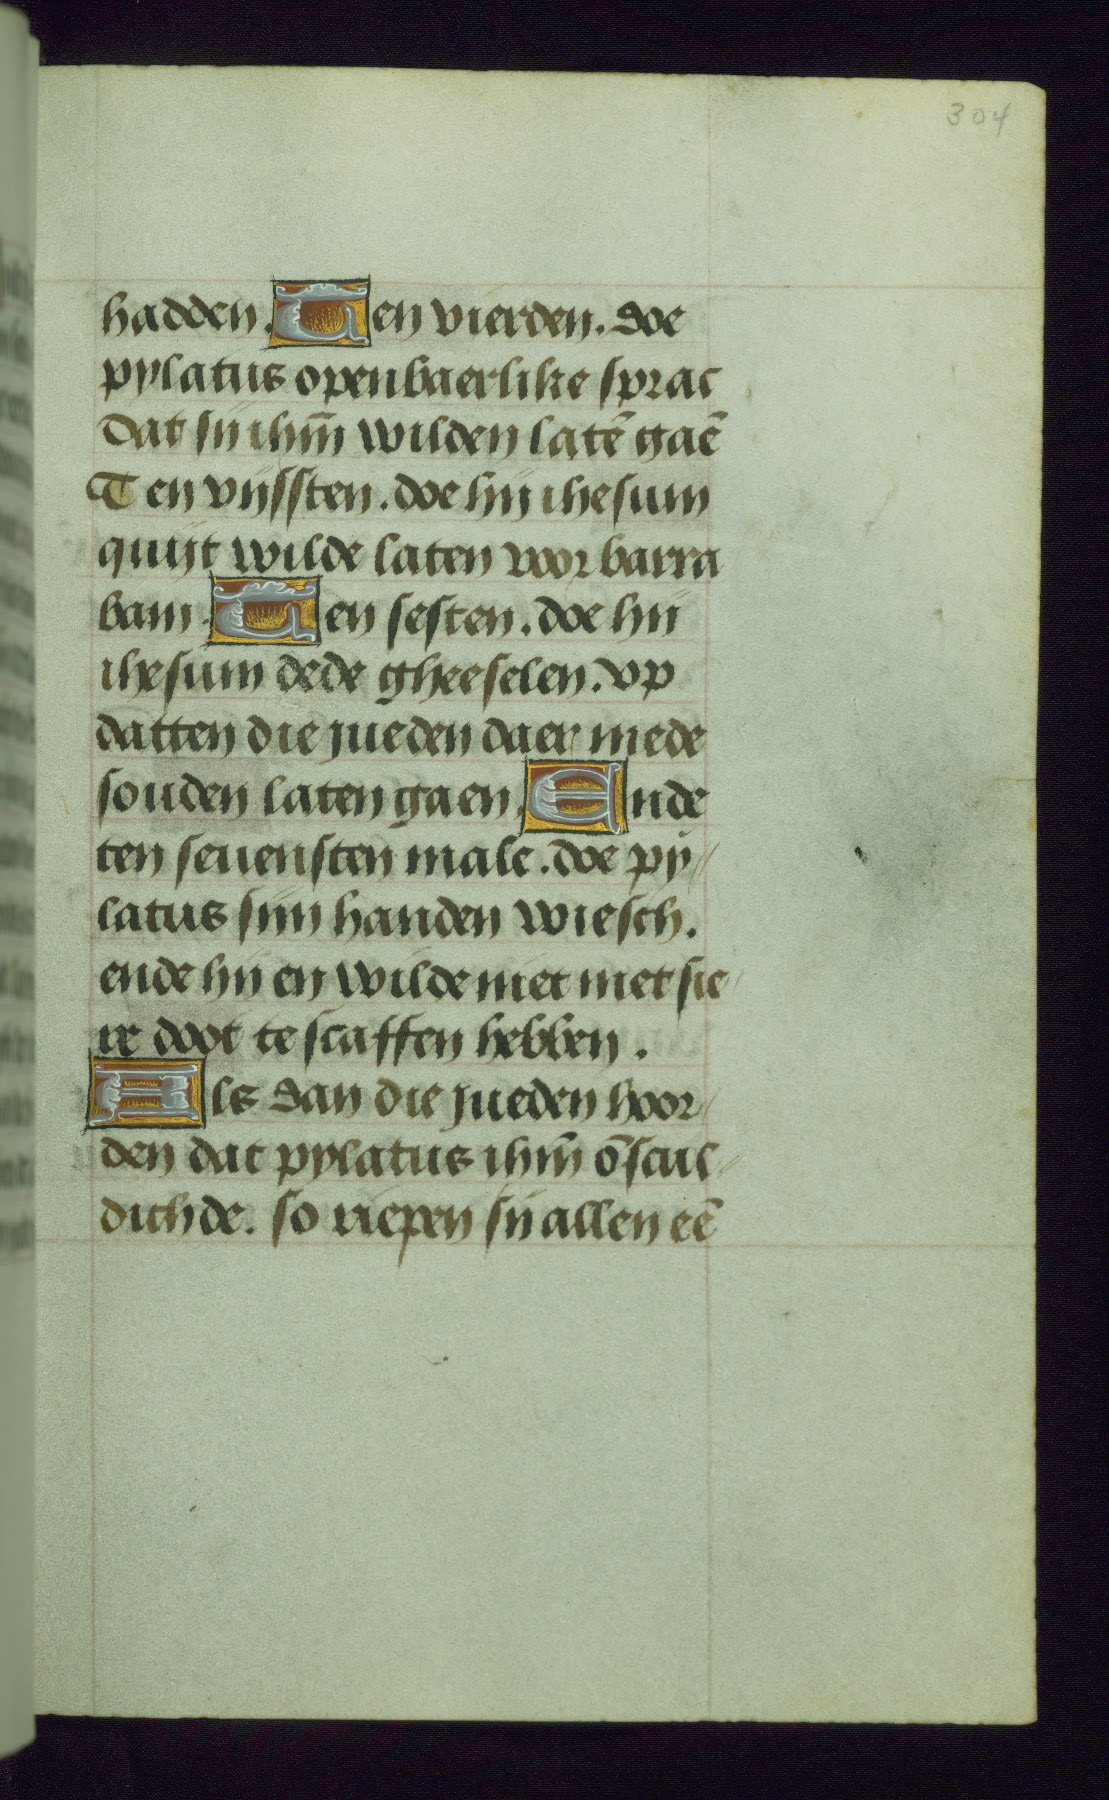 304
hadden. Ten vierden. doe
pylatus openbaerlike sprac
dat sij ihm̄ wilden latē gaē
Ten vijfsten. doe hij ihesum
quijt wilde laten voor barra
bam. Ten sesten. doe hij
ihesum dede gheeselen. vp
datten die jueden daer mede
souden laten gaen. Ende
ten seuensten male. doe py//
latus sijn handen wiesch.
ende hij en wilde niet met sie/
re doot te scaffen hebben.
Als dan die jueden hoor//
den dat pylatus ihm̄ ōscul//
dichde. so riepen sij allen eē